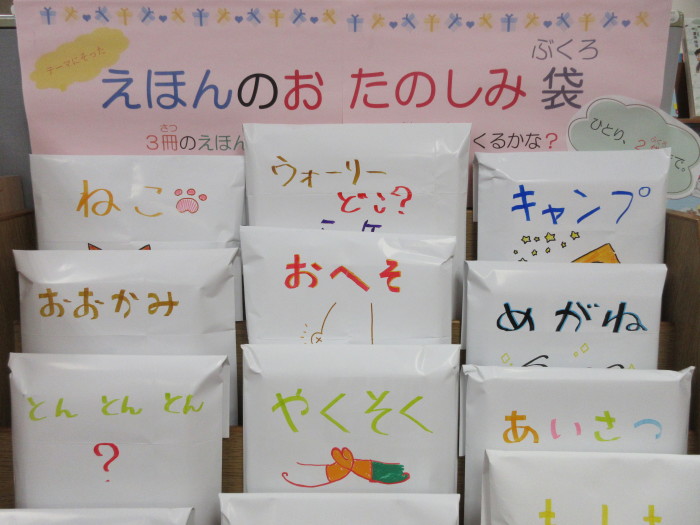 テーマにそった
えほんのお たのしみ袋
ぶくろ
さつ
3冊のえほん
くるかな?
ひとり、
ねこ
ウォーリー
どこ?
キャンプ
おおかみ
おへそ
めがね
とん とん とん
?
やくそく
あいさつ